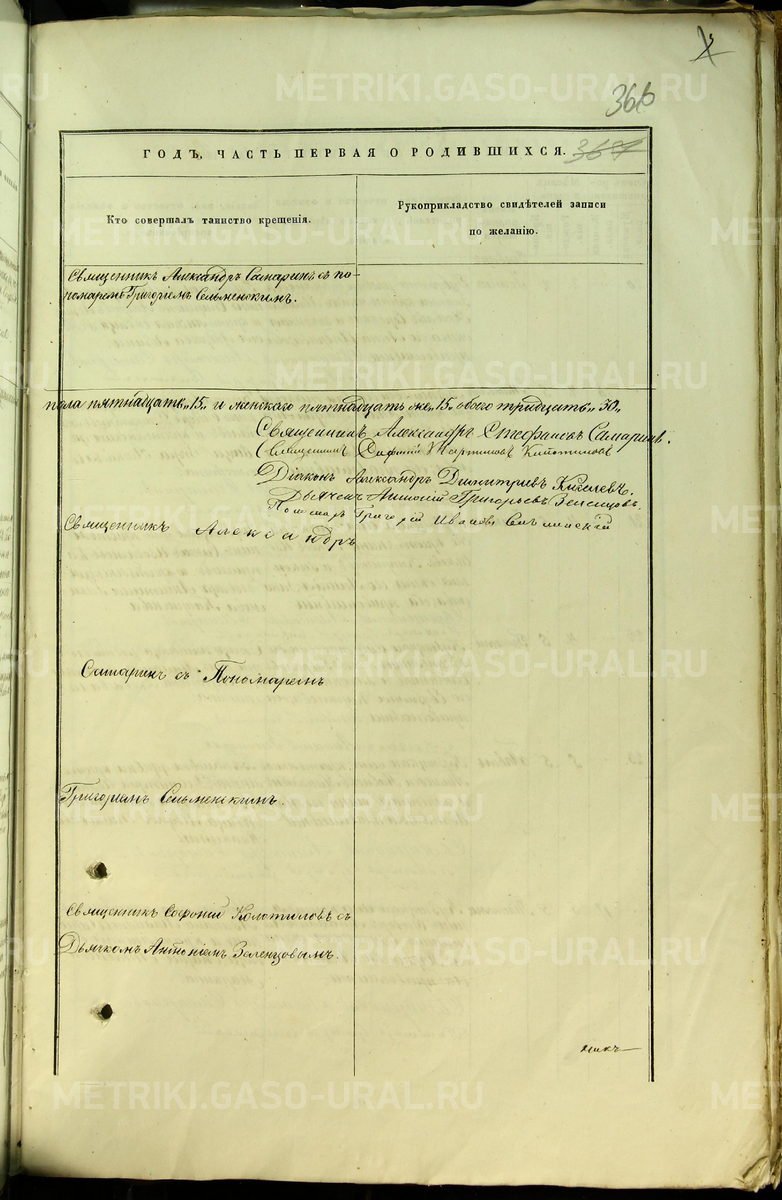 366
ГОДЪ, ЧАСТЬ ПЕРВАЯ О РОДИВШИХСЯ. 367
Кто совершалъ таинство крещенія.
Рукоприкладство свидѣтелей записи
по желанію.
Священникъ Александръ Самаринъ съ по-
номаремъ Григоріемъ Сельменскимъ.
пола пятнадцать „15„ и женскаго пятнадцать же „15„ обоего тридцать „30„
Священникъ Александръ Стефановъ Самаринъ.
Священникъ Софоній Мартиновъ Колотиловъ
Діаконъ Александръ Димитріевъ Киселевъ.
Дьячекъ Антоній Григорьевъ Зеленцовъ.
Пономарь Григорій Ивановъ Сельменскій
Священникъ Александръ
Самаринъ съ Пономаремъ
Григоріемъ Сельменскимъ.
Священникъ Софоній Колотиловъ съ
Дьячкомъ Антоніемъ Зеленцовымъ.
METRIKI.GASO-URAL.RU